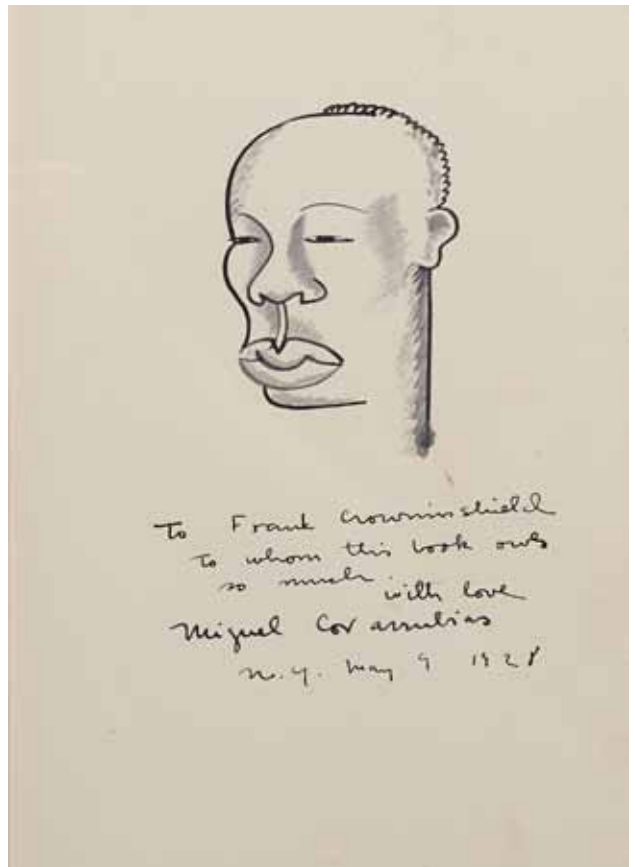 To Frank Crowninshield
To whom this book owes
so much with love
Miguel Covarrubias
N.Y. May 9 1928